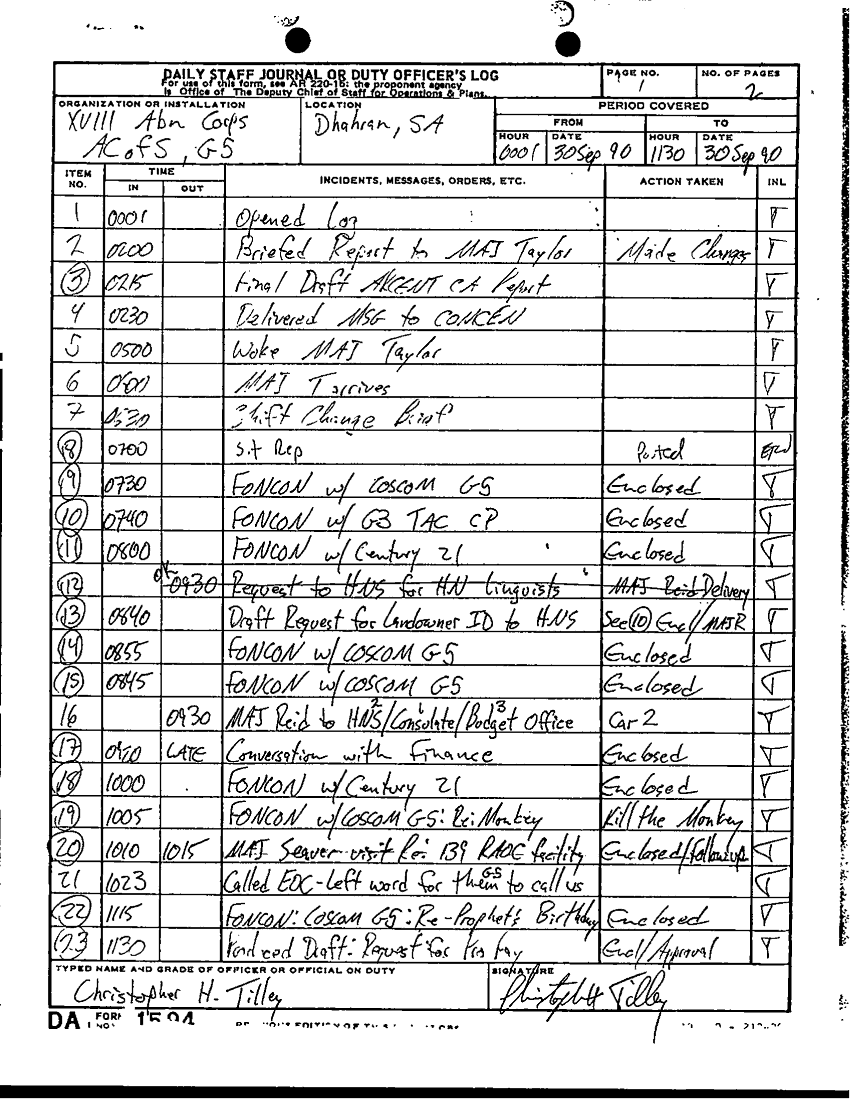 DAILY STAFF JOURNAL OR DUTY OFFICER'S LOG
For use of this form, see AR 220-15: the proponent agency
is Office of The Deputy Chief of Staff for Operations & Plans.
PAGE NO. 1
NO. OF PAGES 2
ORGANIZATION OR INSTALLATION
XVIII Abn Corps
ACofS, G5
LOCATION
Dhahran, SA
PERIOD COVERED
FROM TO
HOUR DATE HOUR DATE
0001 30 Sep 90 1130 30 Sep 90
ITEM NO. TIME IN OUT INCIDENTS, MESSAGES, ORDERS, ETC. ACTION TAKEN INL
1 0001 Opened Log T
2 0200 Briefed Report to MAJ Taylor Made Changes T
3 0215 Final Draft ARCENT CA Report T
4 0230 Delivered MSG to T
5 0500 Woke MAJ Taylor T
6 0600 MAJ T arrives T
7 0630 Shift Change Brief T
8 0700 Sit Rep Posted
9 0730 FONCON w/ COSCOM G5 Enclosed T
10 0740 FONCON w/ G3 TAC CP Enclosed T
11 0800 FONCON w/ Century 21 Enclosed T
12 0930 Request to HNS for HN Linguists MAJ Reid Delivery T
13 0840 Draft Request for Landowner ID to HNS See 10 Encl/MAJ R T
14 0855 FONCON w/ COSCOM G5 Enclosed T
15 0845 FONCON w/ COSCOM G5 Enclosed T
16 0930 MAJ Reid to HNS2/Consulate1/Budget3 Office Car 2 T
17 0920 LATE Conversation with Finance Enclosed T
18 1000 FONCON w/ Century 21 Enclosed T
19 1005 FONCON w/ COSCOM G5: Re: Monkey Kill the Monkey T
20 1010 1015 MAJ Seaver visit Re: 139 RAOC facility Enclosed/followup T
21 1023 Called EOC-Left word for them G5 to call us T
22 1115 FONCON: COSCOM G5: Re-Prophet's Birthday Enclosed T
23 1130 Draft: Request for Pay Encl/Approval T
TYPED NAME AND GRADE OF OFFICER OR OFFICIAL ON DUTY
Christopher H. Tilley
SIGNATURE
Christopher H Tilley
DA FORM 1594